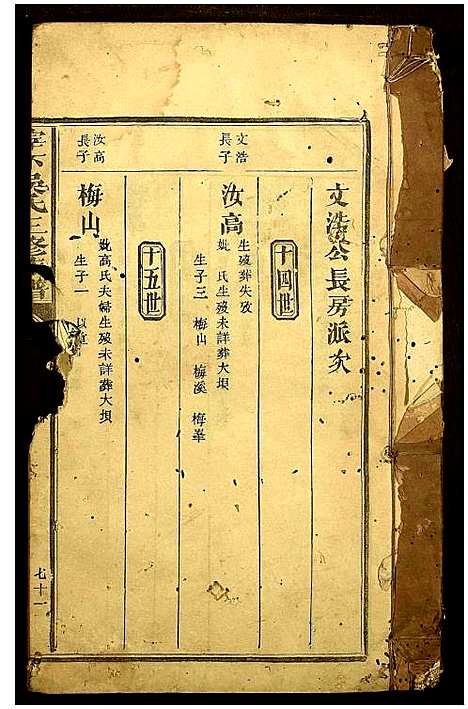 文浩公長房派次
十四世
文浩長子
汝高
生殁葬失攷
妣氏生殁未詳葬大垻
生子三 梅山 梅溪 梅峯
十五世
汝高長子
梅山
妣高氏夫婦生殁未詳葬大垻
生子一
氏三修
譜
七十一